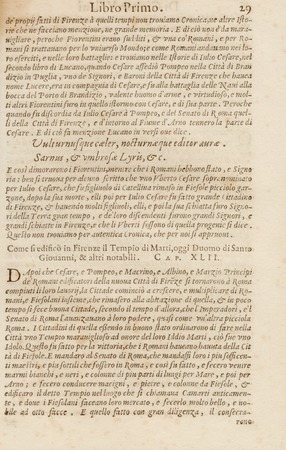 Libro Primo. 29
de' proprij fatti di Firenze à quelli tempi non trouiamo Cronica, ne altre Isto-
rie che ne facciano menzione, ne grande memoria. E di ciò non è da mara-
uigliare, peroche i Fiorentini erano sudditi, & vna co' Romani, e per Ro-
mani si trattauano per lo vniuerso Mondo: e come Romani andauano nei lo-
ro eserciti, e nelle loro battaglie: e trouiamo nelle Istorie di Iulio Cesare, nel
secondo libro di Lucano, quando Cesare assediò Pompeo nella Città di Bran
dizio in Puglia, vno de' Signori, e Baroni della Città di Firenze che hauea
nome Lucere, era in compagnia di Cesare, fu alla battaglia delle Naui alla
bocca del Porto di Brandizio, valente huomo d'arme, e virtudioso, e mol-
ti altri Fiorentini furo in quello istormo con Cesare, e di sua parte. Peroche
quando fu discordia da Iulio Cesare à Pompeo, e del Senato di Roma quel-
li della Città di Firenze, e d'intorno al Fiume d'Arno tennero la parte di
Cesare. E di ciò fa menzione Lucano in versi one dice.
Vulturnusque celer, nocturnæque editor auræ.
Sarnus, & vmbrosæ Lyris, &c.
E così dimorarono i Fiorentini, mentre che i Romani hebbono stato, e Signo
ria: ben si truoua per alcuno scritto che vno Vberto Cesare sopranominato
per Iulio Cesare, che fu figliuolo di Catellina rimaso in Fiesole picciolo gar-
zone, dopo la sua morte, elli poi per Iulio Cesare fu fatto grande Cittadino
di Firenze, & hauendo molti figliuoli, elli, e poi la sua schiatta furo Signo-
ri della Terra gran tempo, e de loro discendenti furono grandi Signori, e
grandi schiatte in Firenze, e che li Vberti fossono di quella progenie si dice.
Quello non trouiamo per autentica Cronica, che per noi si appruoui.
Come si edificò in Firenze il Tempio di Marti, oggi Duomo di Santo
Giouanni, & altri notabili. Cap. XLII.
DApoi che Cesare, e Pompeo, e Macrino, e Albino, e Marzio Principi
de' Romani edificatori della nuoua Città di Firẽze si tornarono à Roma
compiuti li loro lauori, la Cittade cominciò a crescere, e multiplicare di Ro-
mani, e Fiesolani insieme, che rimasero alla abitazione di quella, & in poco
tempo si fece buona Cittade, secondo il tempo d'allora, che l'Imperadori, e'l
Senato di Roma l'auanzauano à loro podere, quasi come vn'altra picciola
Roma. I Cittadini di quella essendo in buono stato ordinarono di fare nella
Città vno Tempio marauiglioso ad onore del loro Iddio Marti, ciò fue vno
Idolo. Quello fu fatto per la vittoria, che i Romani haueano hauuta della Cit
tà di Fiesole. E mandaro al Senato di Roma, che mandasse loro i piu sofficen-
ti maestri, e più sottili che fossero in Roma, e così fu fatto, e fecero venire
marmi bianchi, e neri, e colonne di piu parti di lungi per Mare, e poi per
Arno; e fecero conducere macigni, e pietre, e colonne da Fiesole, &
edificaro il detto Tempio nel luogo che si chiamaua Camarti anticamen-
te, e doue i Fiesolani faceano loro mercato, e fecerlo molto bello, e no-
bile ad otto facce. E quello fatto con gran diligenza, il conserca-
rono